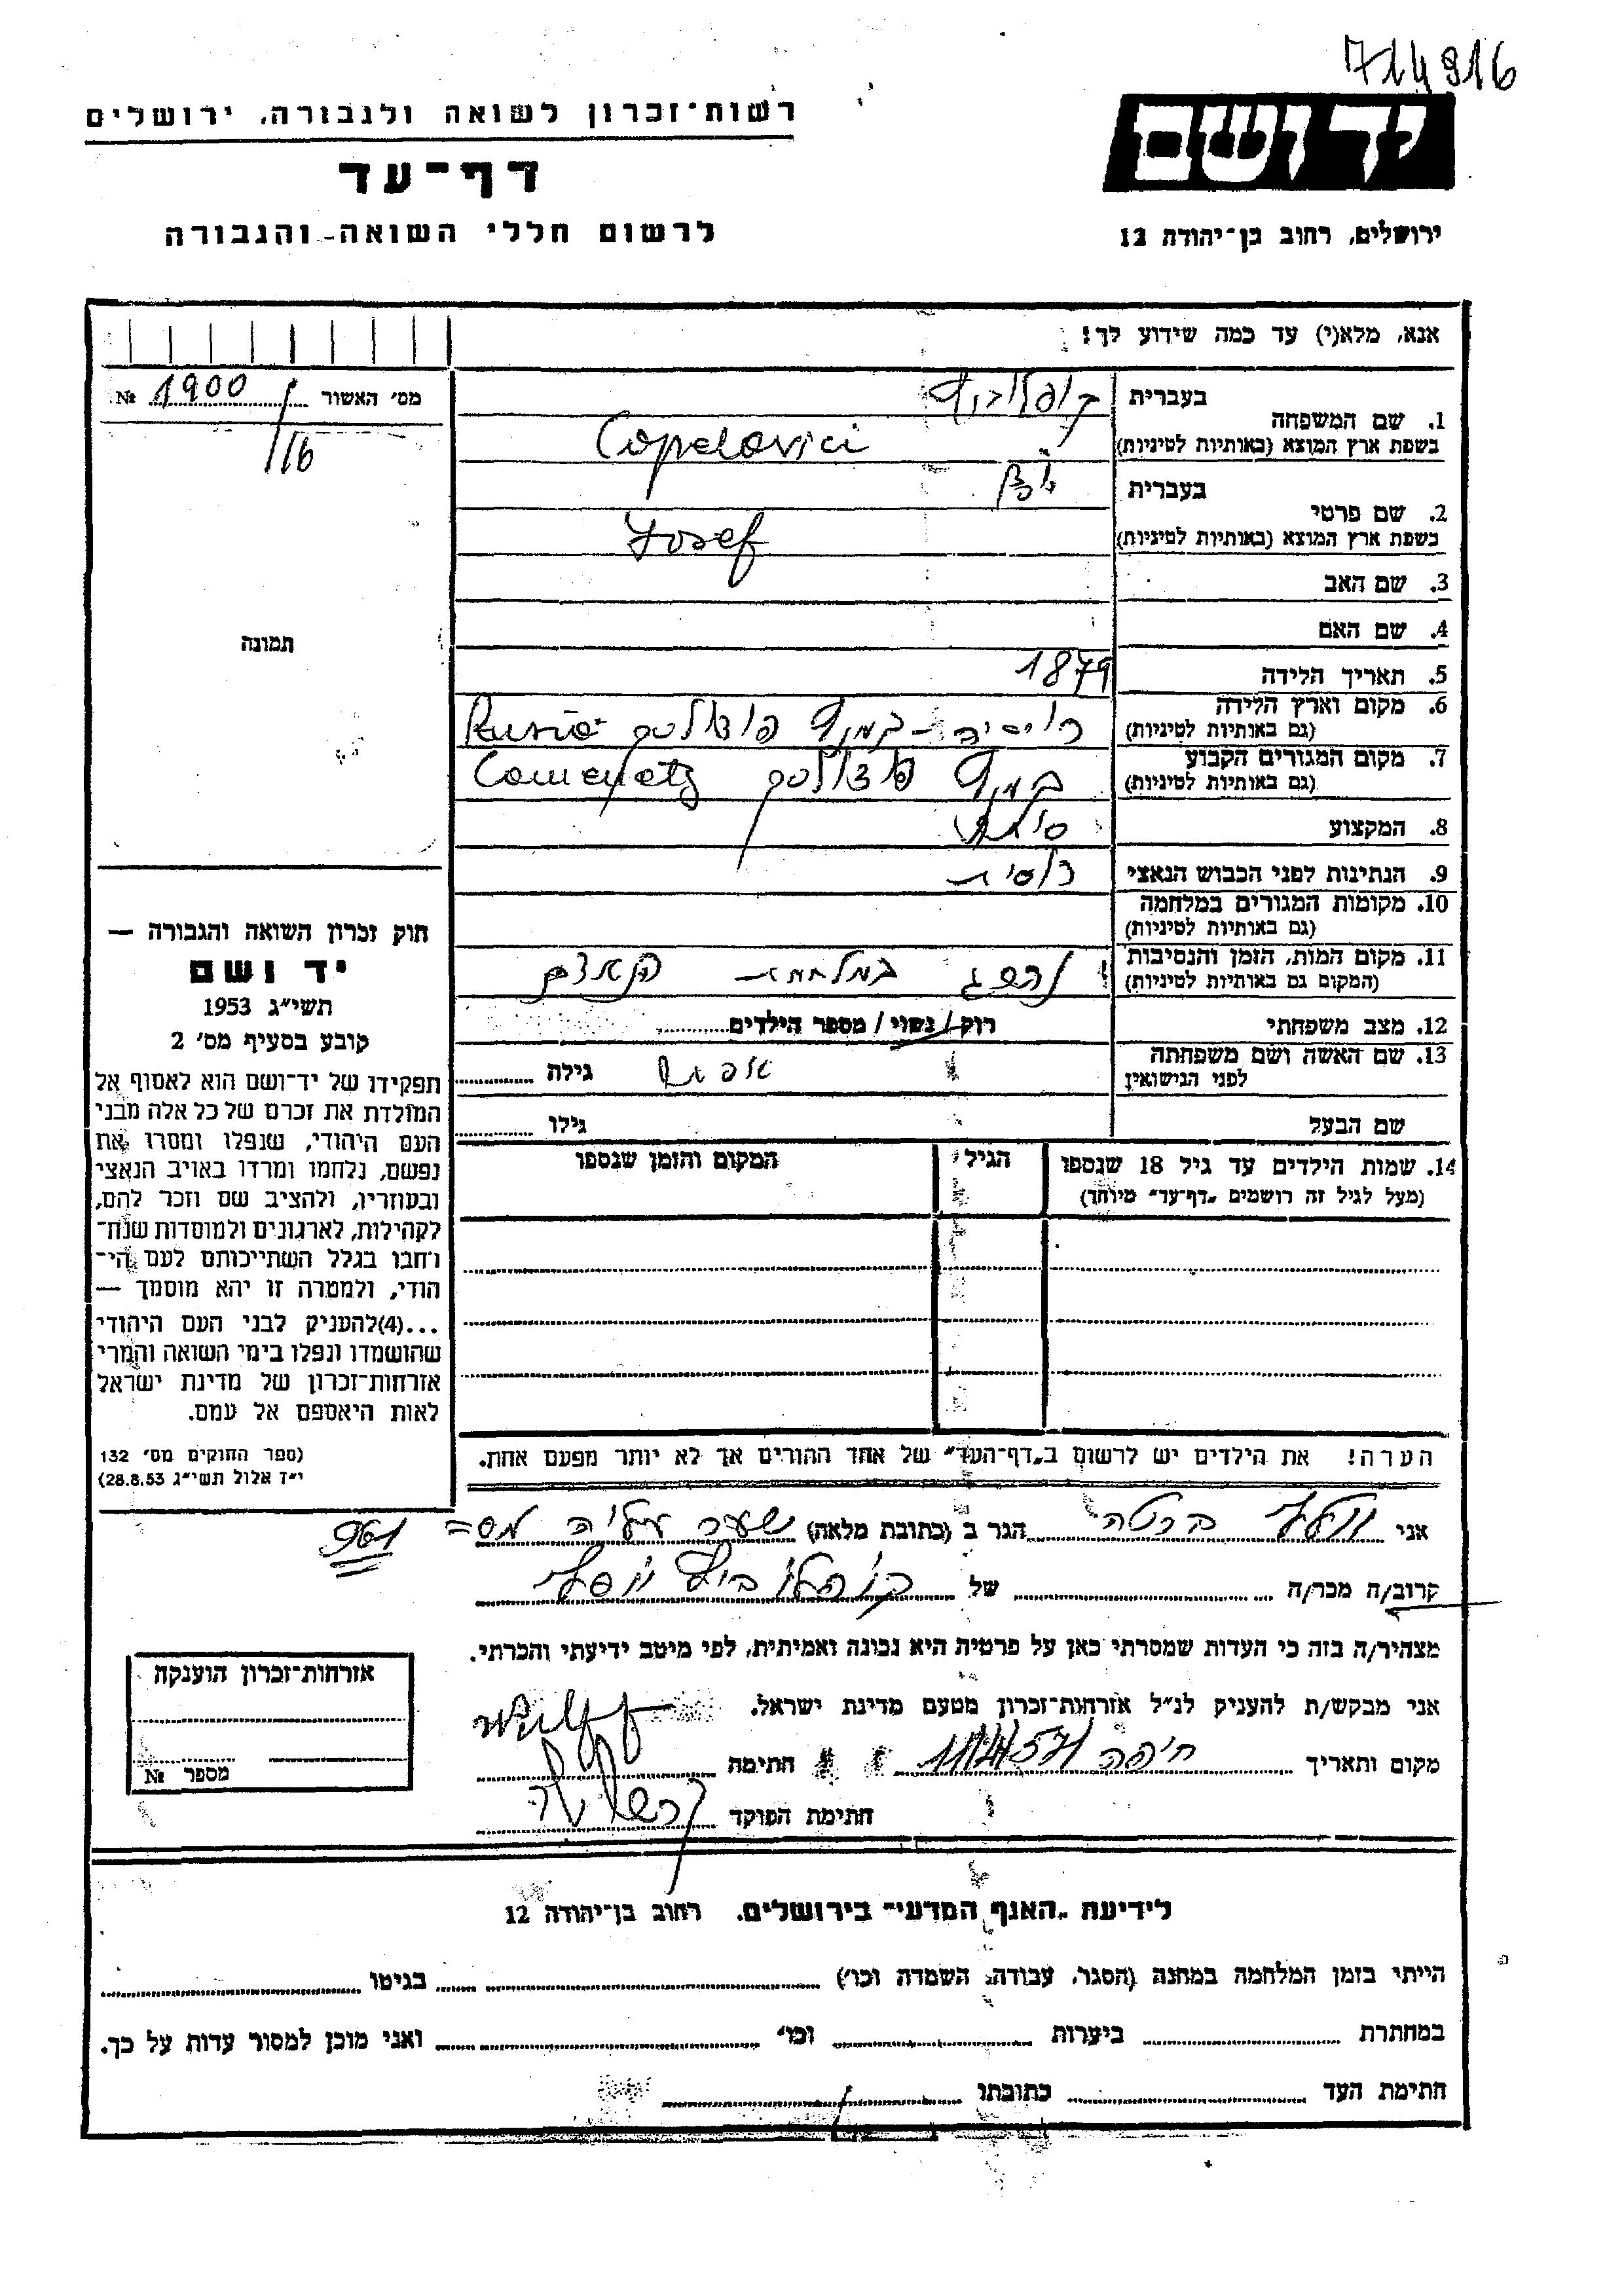 714916
רשות-זכרון לשואה ולגבורה, ירושלים
יד ושם
דף-עד
לרשום חללי השואה והגבורה
ירושלים, רחוב בן-יהודה 12
אנא, מלא(י) עד כמה שידוע לך!
מס' האשור 1900 №
116
תמונה
1. שם המשפחה
בעברית
בשפת ארץ המוצא (באותיות לטיניות) Copelovici
2. שם פרטי
בעברית
בשפת ארץ המוצא (באותיות לטיניות) Josef
3. שם האב
4. שם האם
5. תאריך הלידה 1879
6. מקום וארץ הלידה
(גם באותיות לטיניות) רוסיה - קמנץ פודולסק Rusia
7. מקום המגורים הקבוע
(גם באותיות לטיניות) קמנץ פודולסק Comenetz
8. המקצוע
9. הנתינות לפני הכבוש הנאצי רוסית
10. מקומות המגורים במלחמה
(גם באותיות לטיניות)
11. מקום המות, הזמן והנסיבות
(המקום גם באותיות לטיניות) נהרג במלחמת הנאצים
12. מצב משפחתי רוק/נשוי/מספר הילדים
13. שם האשה ושם משפחתה
לפני הנישואין
גילה
שם הבעל גילו
14. שמות הילדים עד גיל 18 שנספו
(מעל לגיל זה רושמים "דף-עד" מיוחד)
הגיל
המקום והזמן שנספו
הערה! את הילדים יש לרשום ב"דף-העד" של אחד ההורים אך לא יותר מפעם אחת.
חוק זכרון השואה והגבורה —
יד ושם
תשי"ג 1953
קובע בסעיף מס' 2
תפקידו של יד-ושם הוא לאסוף אל
המולדת את זכרם של כל אלה מבני
העם היהודי, שנפלו ומסרו את
נפשם, נלחמו ומרדו באויב הנאצי
ובעוזריו, ולהציב שם וזכר להם,
לקהילות, לארגונים ולמוסדות שנח-
רבו בגלל השתייכותם לעם הי-
הודי, ולמטרה זו יהא מוסמך —
...(4)להעניק לבני העם היהודי
שהושמדו ונפלו בימי השואה והמרי
אזרחות-זכרון של מדינת ישראל
לאות היאספם אל עמם.
(ספר החוקים מס' 132
י"ז אלול תשי"ג 28.8.53)
אני וולף ברטה הגר ב (כתובת מלאה) שער עליה מס= 961
קרוב/ה מכר/ה של קופלוביץ יוסף
מצהיר/ה בזה כי העדות שמסרתי כאן על פרטיה היא נכונה ואמיתית, לפי מיטב ידיעתי והכרתי.
אני מבקש/ת להעניק לנ"ל אזרחות-זכרון מטעם מדינת ישראל.
מקום ותאריך חיפה 11/4/57 חתימה
חתימת הפוקד
אזרחות-זכרון הוענקה
מספר №
לידיעת "האגף המדעי" בירושלים, רחוב בן-יהודה 12
הייתי בזמן המלחמה במחנה (הסגר, עבודה, השמדה וכו') בגיטו
במחתרת ביערות וכו' ואני מוכן למסור עדות על כך.
חתימת העד כתובתו